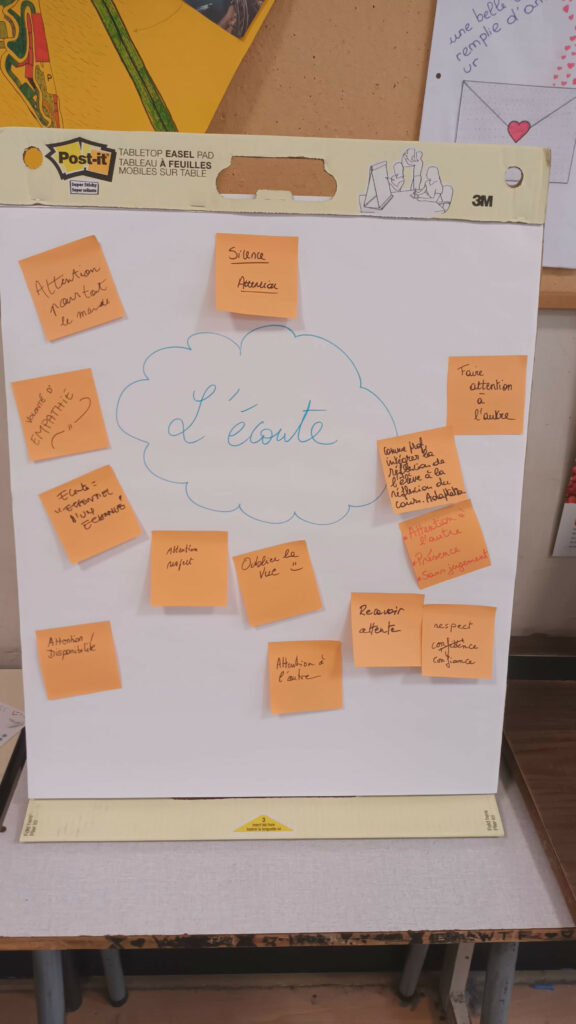 une belle
remplie d'am
ur
P
Post-it
Super Sticky
Super collants
TABLETOP EASEL PAD
TABLEAU À FEUILLES
MOBILES SUR TABLE
3M
Silence
Attention
Attention
pour tout
le monde
L'écoute
Faire
attention
à
l'autre
VOLONTÉ D'
EMPATHIE
Comme prof
intégrer la
réflexion de
l'élève à la
réflexion du
cours. Adaptation
Ecoute =
L'ESSENTIEL
D'UN
ECHANGE
• Attention à
l'autre
• Présence
• Sans jugement
Attention
respect
Oublier la
vue
Recevoir
attente
respect
confiance
Attention /
Disponibilité
Attention à
l'autre
3